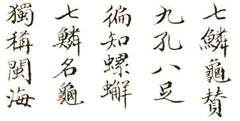 七鱗龜賛
九孔八足
徧知螺蠏
七鱗名龜
獨稱閩海